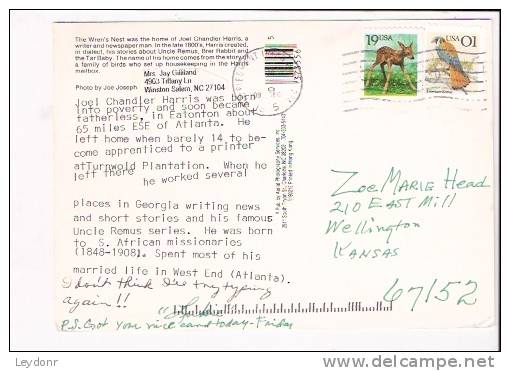 The Wren's Nest was the home of Joel Chandler Harris, a
writer and newspaper man. In the late 1800's, Harris created,
in dialect, his stories about Uncle Remus, Brer Rabbit and
the Tar Baby. The name of his home comes from the story of
a family of birds who set up housekeeping in the Harris
mailbox.
Mrs. Jay Gilliland
4903 Tiffany Ln
Winston Salem, NC 27104
Photo by Joe Joseph
Joel Chandler Harris was born
into poverty and soon became
fatherless, in Eatonton about
65 miles ESE of Atlanta. He
left home when barely 14 to be-
come apprenticed to a printer
atTurnwold Plantation. When he
left there he worked several
places in Georgia writing news
and short stories and his famous
Uncle Remus series. He was born
to S. African missionaries
(1848-1908). Spent most of his
married life in West End (Atlanta).
I don't think I'll try typing
again!!
P.S. Got your nice card today - Friday
19 USA
USA 01
Zoe Marie Head
210 East Mill
Wellington
Kansas
67152
Leydonr
delcampe.net